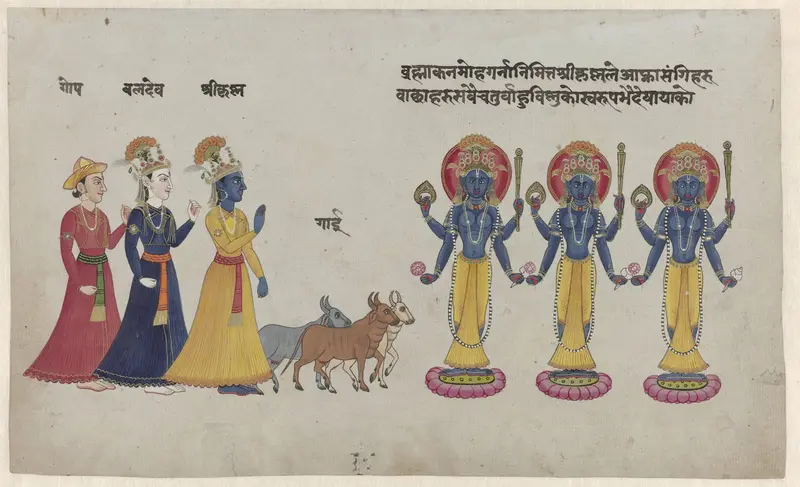 गोप
बलदेव
श्रीकृष्ण
गाई
ब्रह्माकन मोहगर्नानिमित्त श्रीकृष्णले आफ्ना संगिहरु
वाछाहरु सवै चतुर्वाहु विष्णुको स्वरुप भैदेषायाको